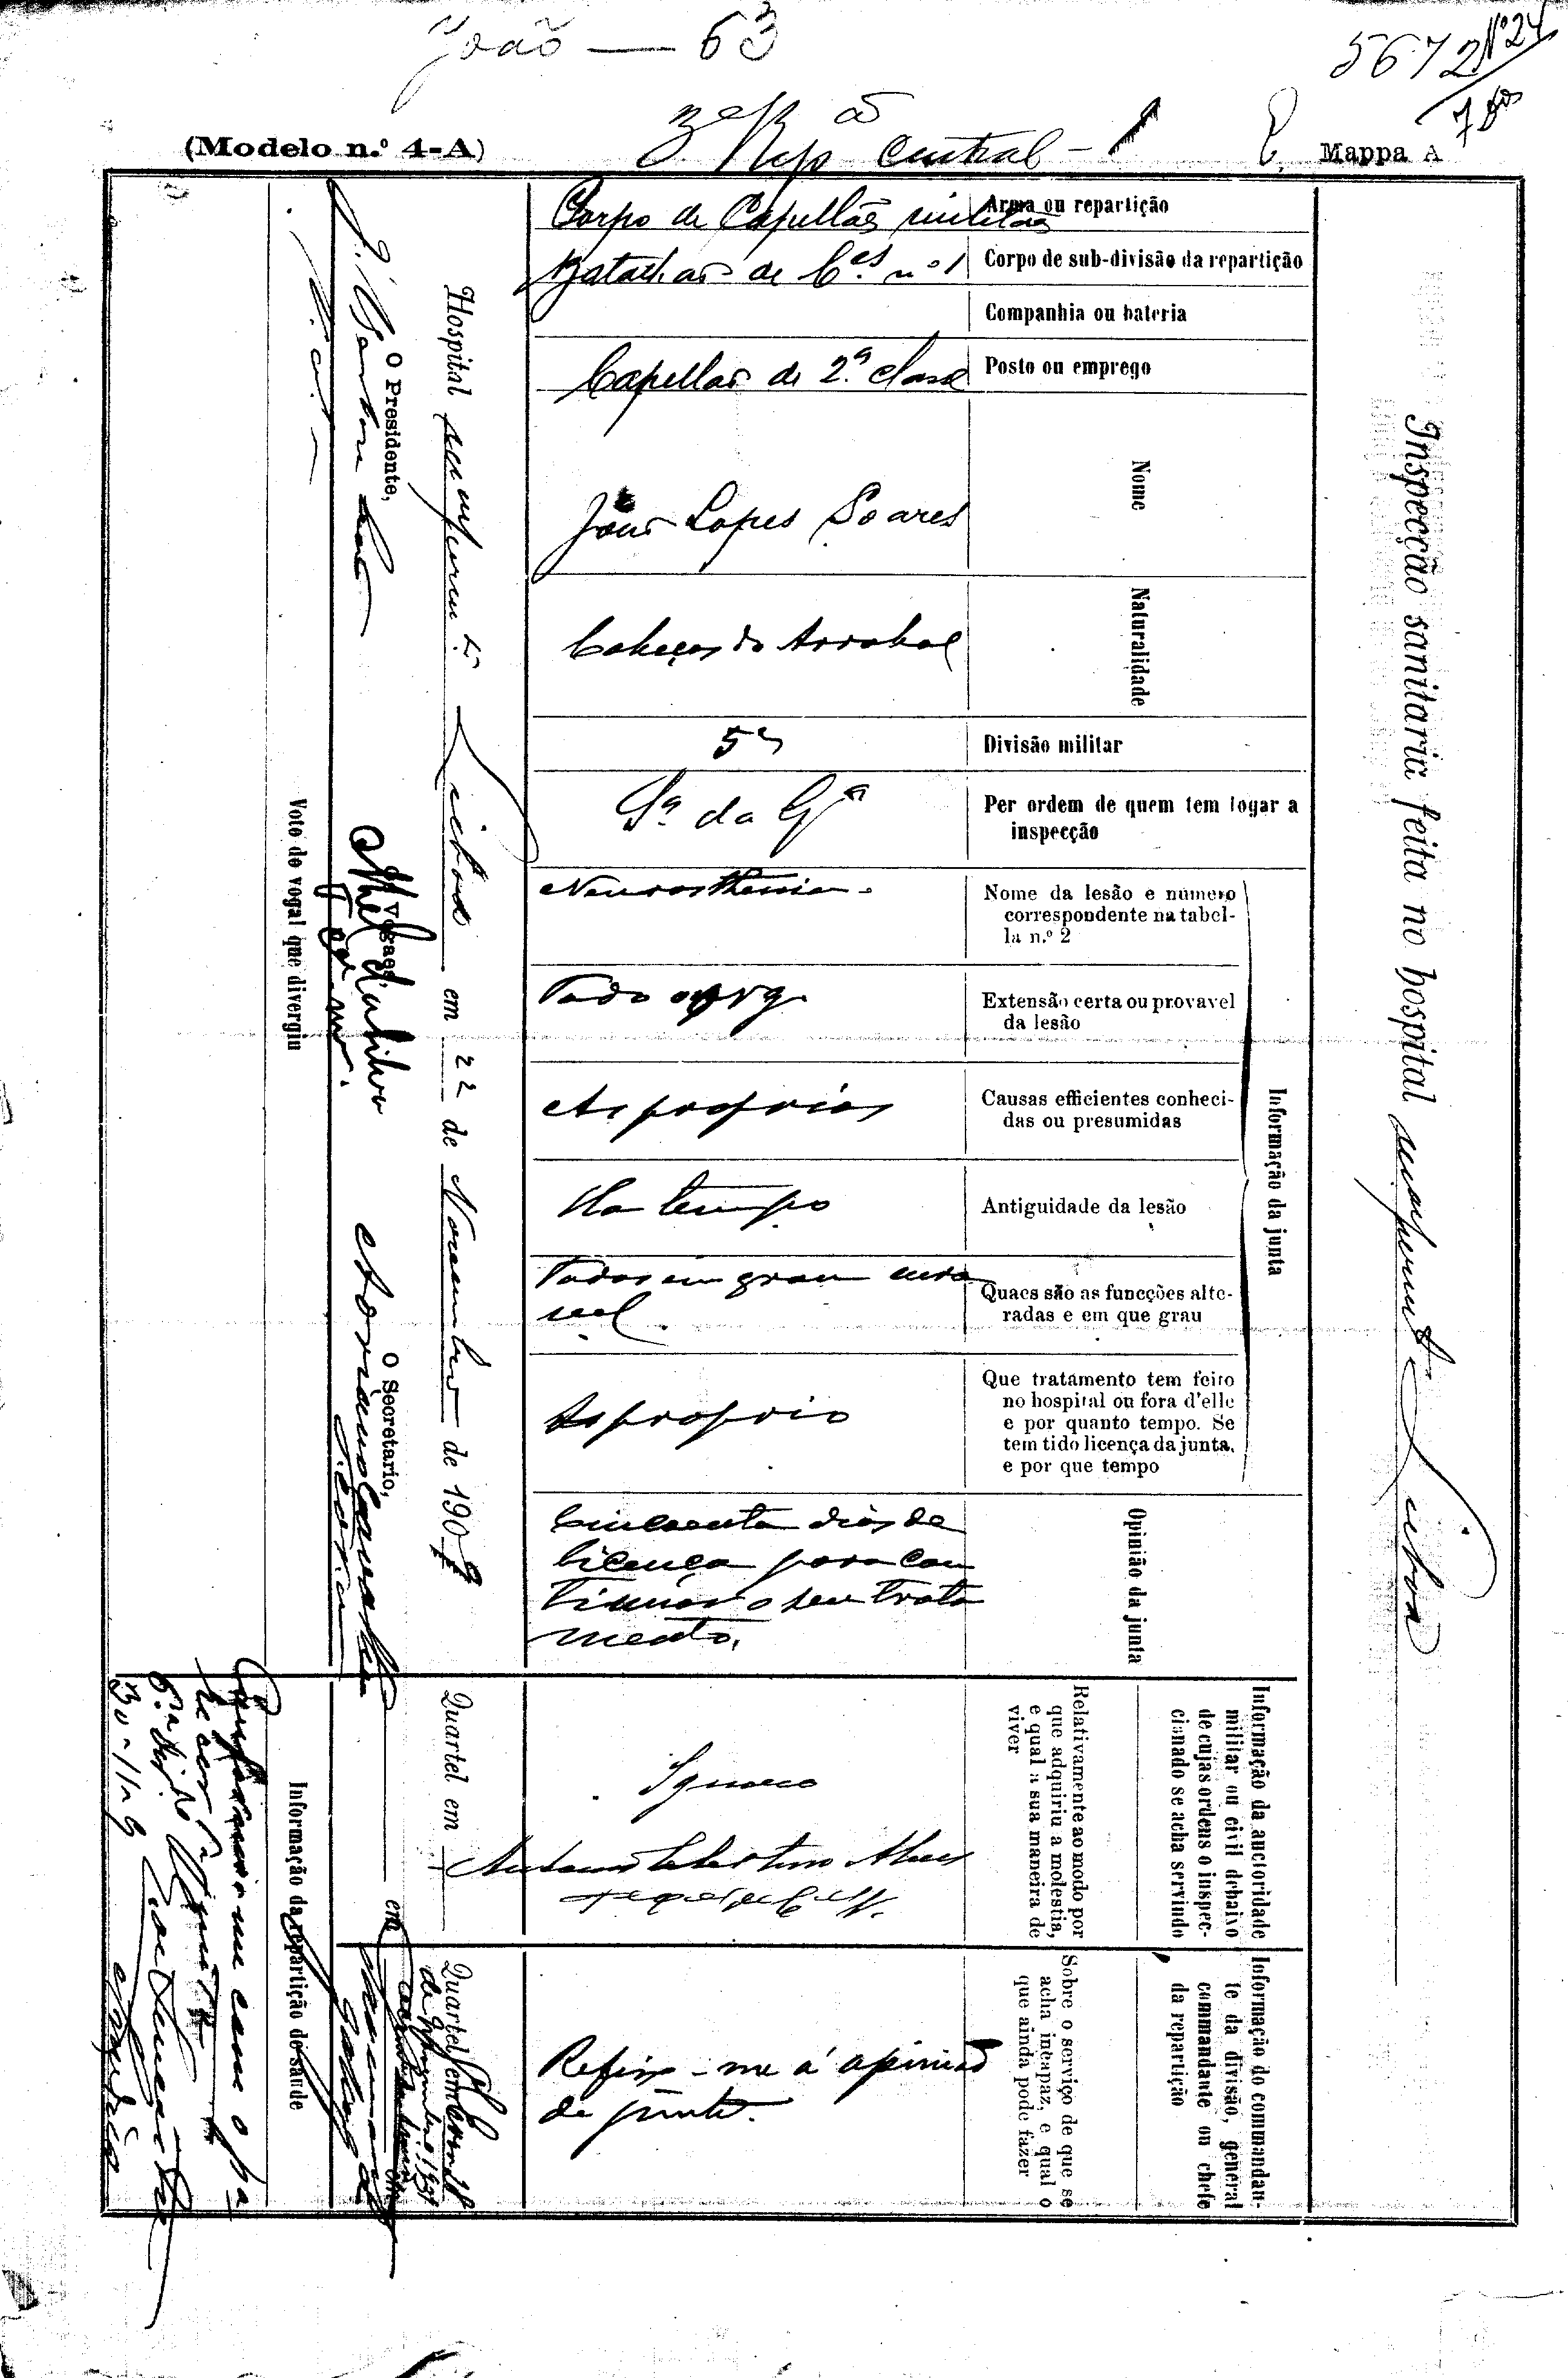 João — 63
5672 Nº 24
(Modelo n.º 4-A)
3ª Rep ão Central - 1
E.
Mappa A
Inspecção sanitaria feita no hospital permanente Lisboa
Arma ou repartição
Corpo de Capellães militares
Corpo de sub-divisão da repartição
Batalhão de C.es nº 1
Companhia ou bateria
Posto ou emprego
Capellão de 2.ª classe
Nome
João Lopes Soares
Naturalidade
Cabeças do Arrabal
Divisão militar
5ª
Per ordem de quem tem logar a
inspecção
S.ª da G.ª
Informação da junta
Nome da lesão e numero
correspondente na tabel-
la n.º 2
Neurasthenia.
Extensão certa ou provavel
da lesão
Todo org.
Causas efficientes conheci-
das ou presumidas
As proprias
Antiguidade da lesão
Ha tempo
Quaes são as funcções alte-
radas e em que grau
Todas em grau
Que tratamento tem feito
no hospital ou fora d'elle
e por quanto tempo. Se
tem tido licença da junta,
e por que tempo
O proprio
Opinião da junta
Cincoenta dias de
licença para con
tinuar o seu trata
mento.
Informação da auctoridade
militar ou civil debaixo
de cujas ordens o inspec-
cionado se acha servindo
Relativamente ao modo por
que adquiriu a molestia,
e qual a sua maneira de
viver
Ignoro
Informação do commandan-
te da divisão, general
commandante ou chefe
da repartição
Sobre o serviço de que se
acha incapaz, e qual o
que ainda pode fazer
Refiro-me á opinião
da junta.
Hospital permanente Lisboa em 22 de Novembro de 1909
Quartel em
em
Quartel em
O Presidente,
Vogaes
O Secretario,
Voto do vogal que divergiu
Informação da repartição de saude
Conformo-me com o pa-
recer
30-11-9